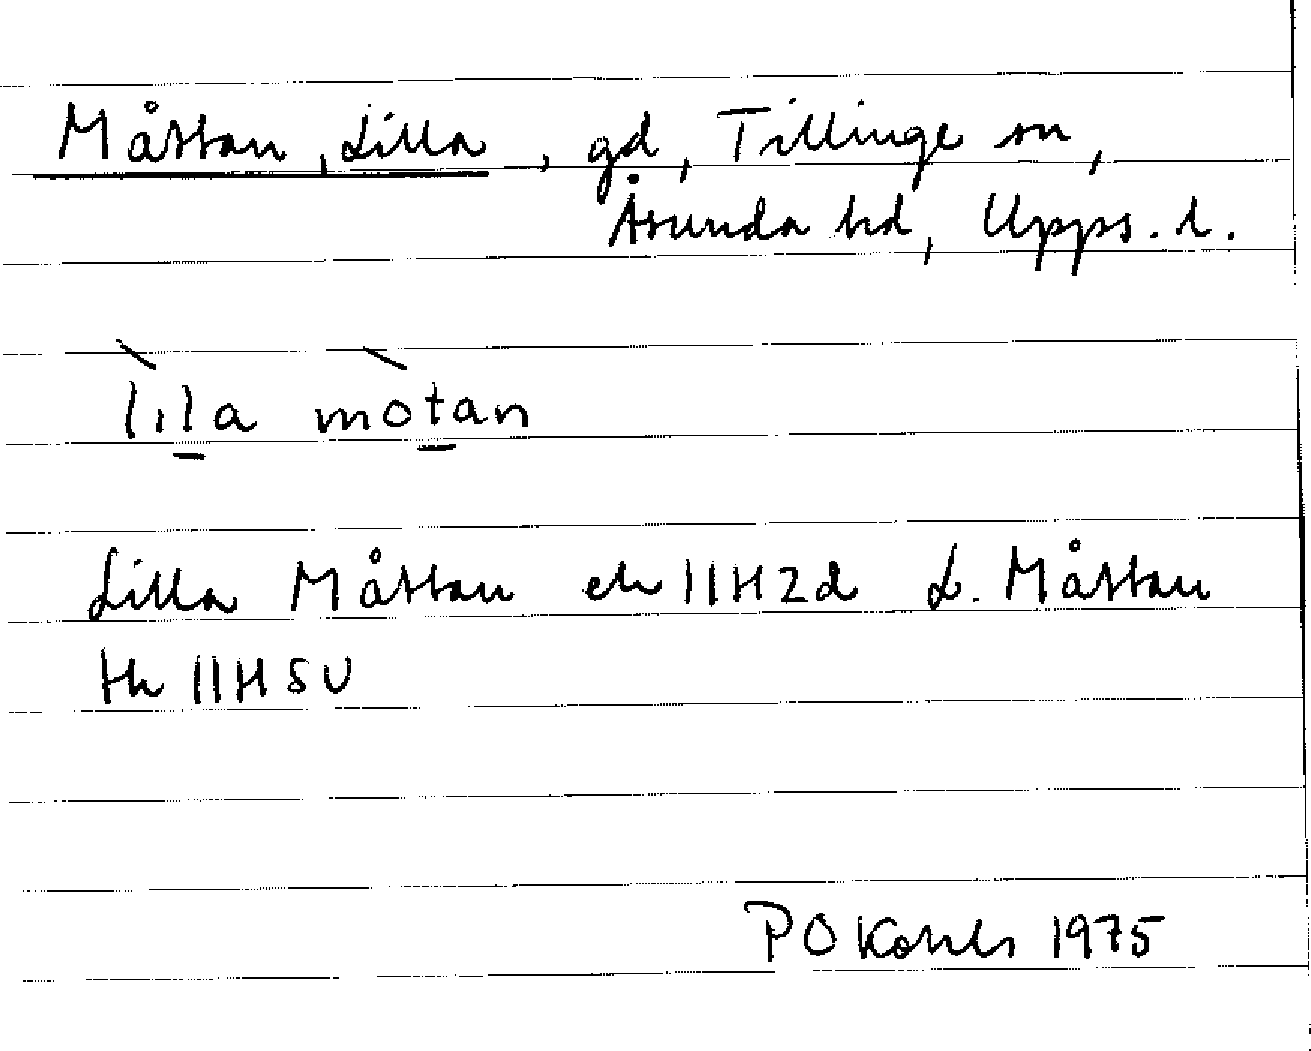 Måttan, Lilla, gd, Tillinge sn,
Åsunda hd, Upps. l.
lịla motan
Lilla Måttan ek 11H2d L. Måttan
tk 11H SV
P O 1975